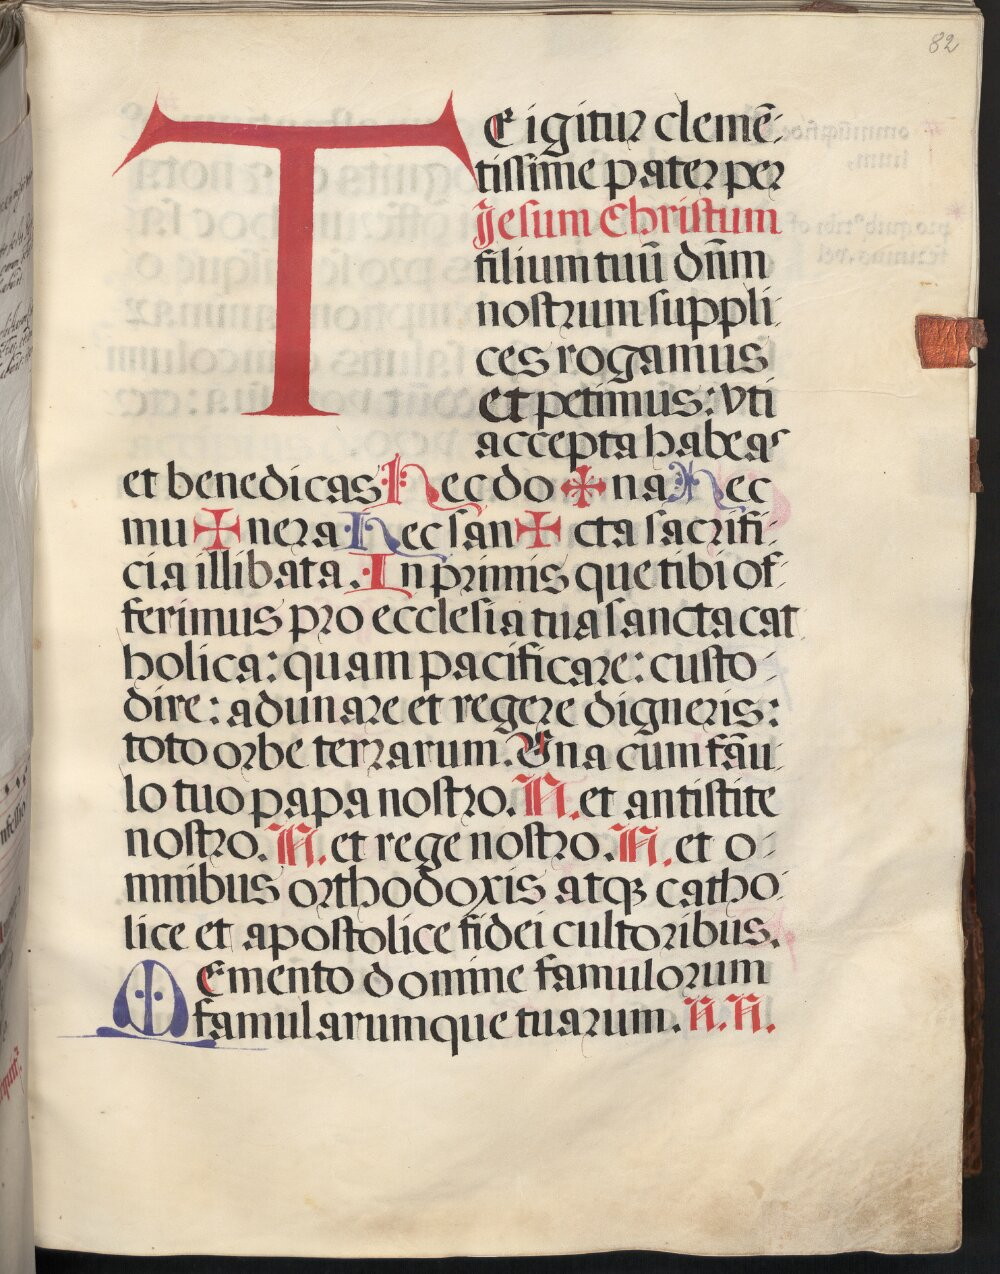 82
TE igitur clemē-
tissime pater per
Jesum Christum
filium tuū dn̄m
nostrum suppli-
ces rogamus
et petimus: vti
accepta habeas
et benedicas Hec do ✠ na Hec
mu ✠ nera Hec san ✠ cta sacrifi-
cia illibata. In primis que tibi of-
ferimus pro ecclesia tua sancta cat
holica: quam pacificare: custo-
dire: adunare et regere digneris:
toto orbe terrarum. Una cum fāu-
lo tuo papa nostro. N. et antistite
nostro. N. et rege nostro. N. et o-
mnibus orthodoxis atqꝫ catho-
lice et apostolice fidei cultoribus.
MEmento domine famulorum
famularumque tuarum. N. N.